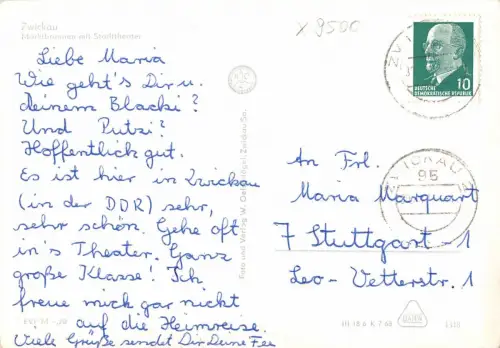 Zwickau
x 9500
Liebe Maria
Wie geht's Dir u.
deinem Blacki?
Und Putzi?
Hoffentlich gut.
Es ist hier in Zwickau
(in der DDR) sehr,
sehr schön. Gehe oft
in's Theater. Ganz
große Klasse! Ich
freue mich gar nicht
auf die Heimreise.
Viele Grüße sendet Dir Deine Fee
Foto und Verlag W.
10
DEUTSCHE
DEMOKRATISCHE REPUBLIK
ZWICKAU
95
An Frl.
Maria Marquart
7 Stuttgart-1
Leo-Vetterstr. 1